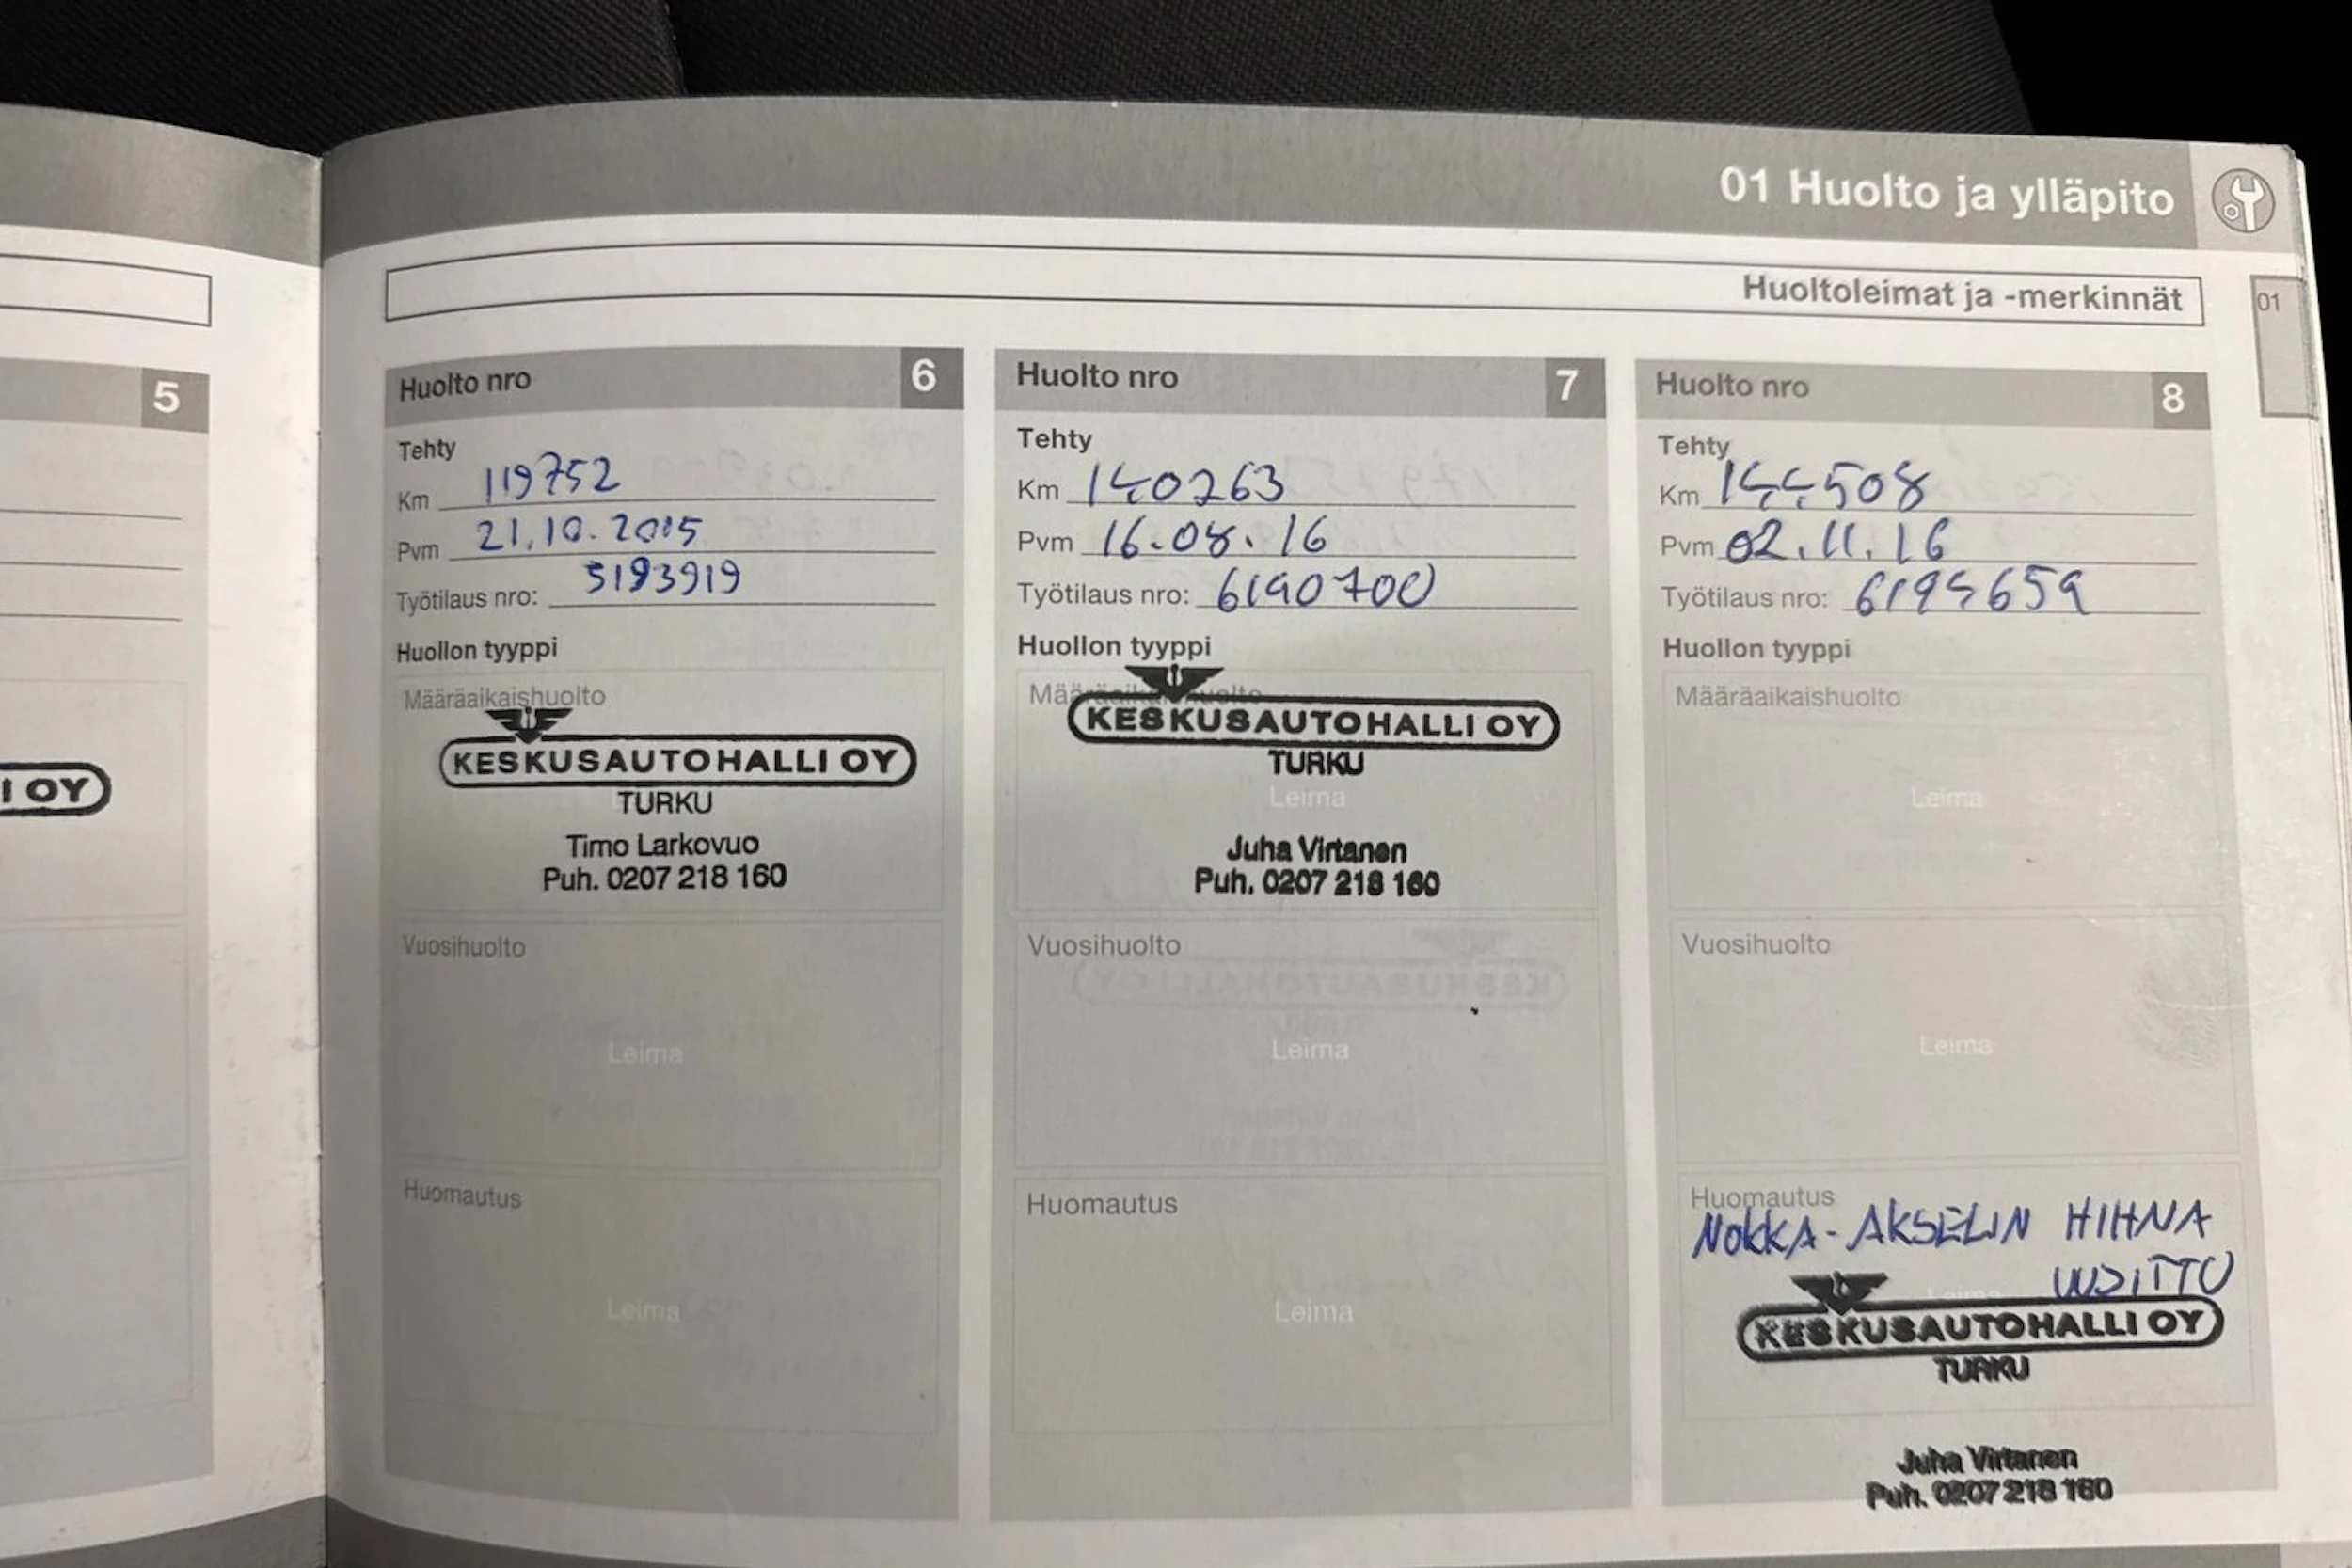 01 Huolto ja ylläpito
Huoltoleimat ja -merkinnät
01
5
I OY
Huolto nro 6
Tehty
Km 119752
Pvm 21.10.2015
Työtilaus nro: 5193919
Huollon tyyppi
Määräaikaishuolto
KESKUSAUTOHALLI OY
TURKU
Timo Larkovuo
Puh. 0207 218 160
Vuosihuolto
Leima
Huomautus
Leima
Huolto nro 7
Tehty
Km 140263
Pvm 16.08.16
Työtilaus nro: 6190700
Huollon tyyppi
Määräaikaishuolto
KESKUSAUTOHALLI OY
TURKU
Leima
Juha Virtanen
Puh. 0207 218 160
Vuosihuolto
Leima
Huomautus
Leima
Huolto nro 8
Tehty
Km 144508
Pvm 02.11.16
Työtilaus nro: 6194659
Huollon tyyppi
Määräaikaishuolto
Leima
Vuosihuolto
Leima
Huomautus
NOKKA-AKSELIN HIHNA
UUSITTU
Leima
KESKUSAUTOHALLI OY
TURKU
Juha Virtanen
Puh. 0207 218 160